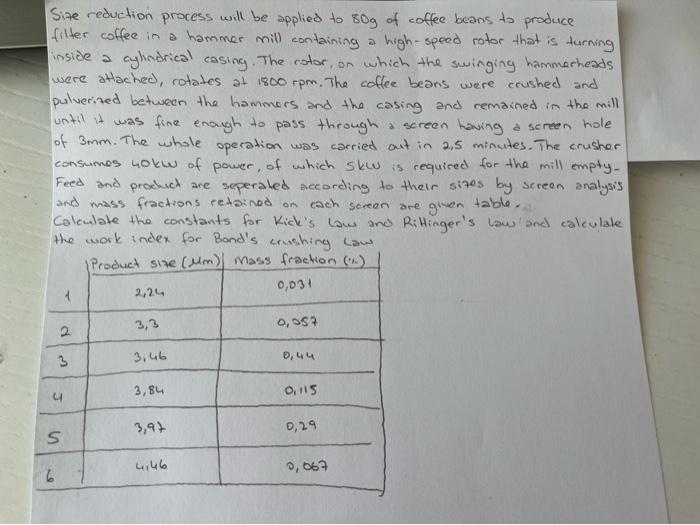 Size reduction process will be applied to 80g of coffee beans to produce
filter coffee in a hammer mill containing a high-speed rotor that is turning
inside a cylindrical casing. The rotor, on which the swinging hammerheads
were attached, rotates at 1800 rpm. The coffee beans were crushed and
pulverized between the hammers and the casing and remained in the mill
until it was fine enough to pass through a screen having a screen hole
of 3mm. The whole operation was carried out in 2,5 minutes. The crusher
consumes 40kw of power, of which 5kw is required for the mill empty.
Feed and product are seperated according to their sizes by screen analysis
and mass fractions retained on each screen are given table.
Calculate the constants for Kick's Law and Rittinger's Law and calculate
the work index for Bond's crushing Law
Product size (μm) Mass fraction (%)
1 2,24 0,031
2 3,3 0,057
3 3,46 0,44
4 3,84 0,115
5 3,97 0,29
6 4,46 0,067